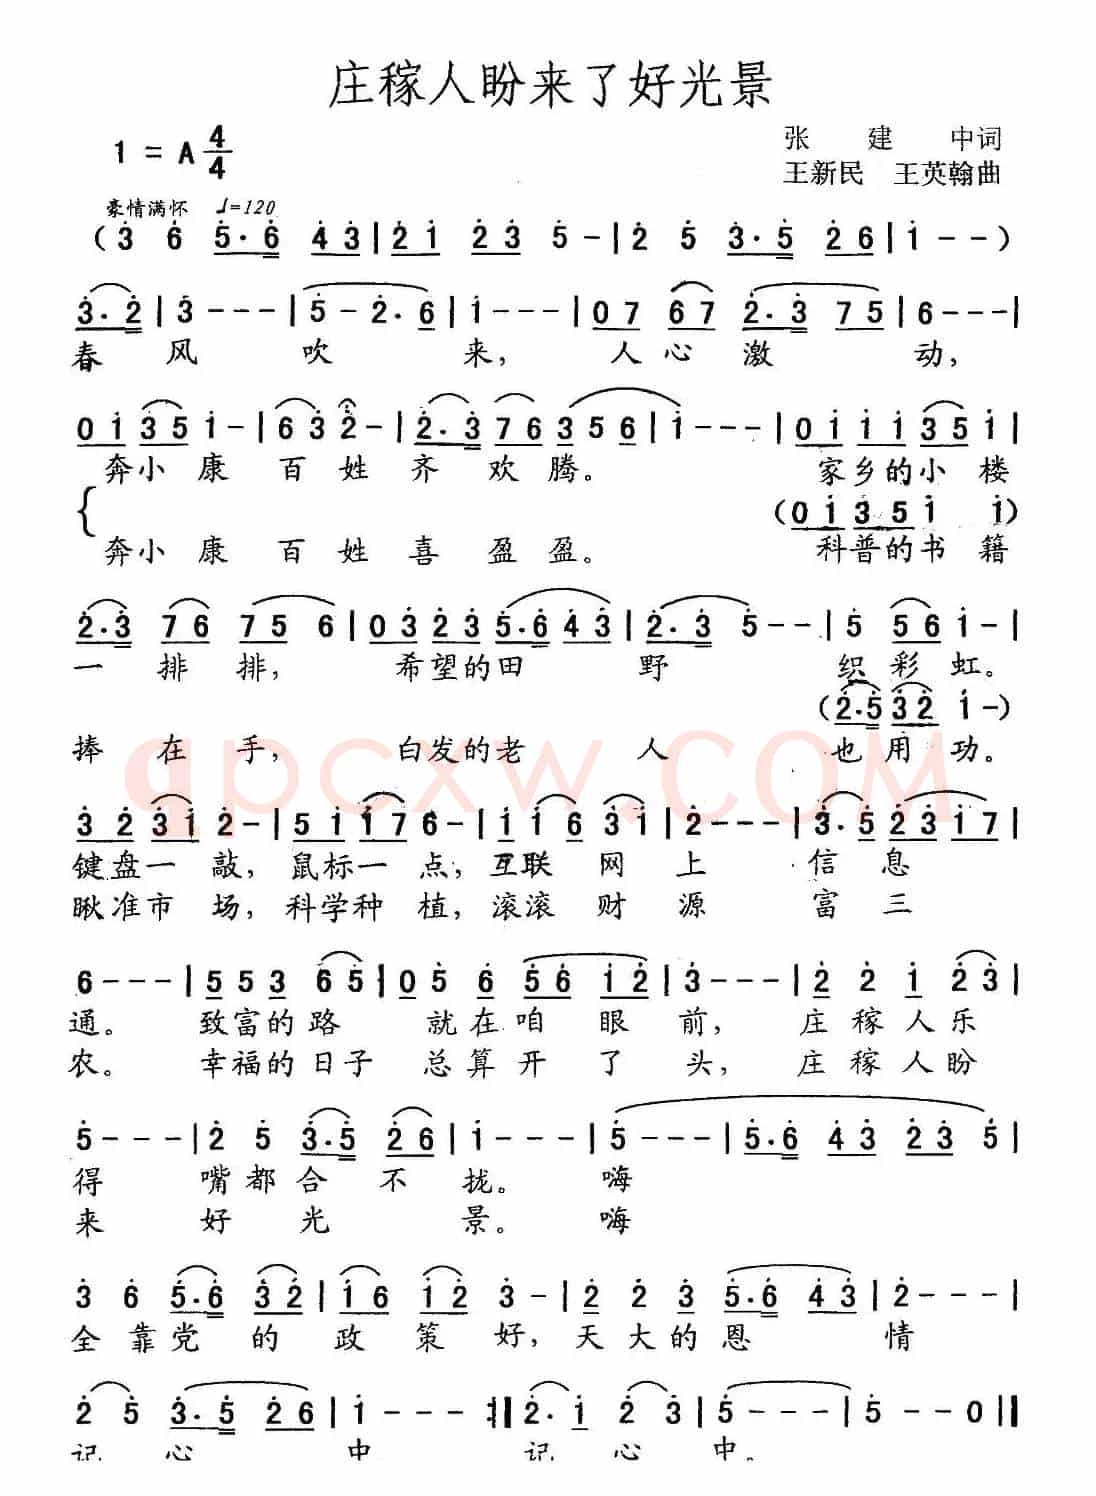 庄稼人盼来了好光景
1 = A 4/4
张 建 中词
王新民 王英翰曲
豪情满怀 ♩=120
( 3 6 5·6 4 3 | 2 1 2 3 5 - | 2 5 3·5 2 6 | 1 - - )
3·2 | 3 - - - | 5 - 2·6 | 1 - - - | 0 7 6 7 2·3 7 5 | 6 - - - |
春 风 吹 来, 人 心 激 动,
0 1 3 5 1 - | 6 3 2 - | 2·3 7 6 3 5 6 | 1 - - - | 0 1 1 1 3 5 1 |
奔小 康 百 姓 齐 欢 腾。 家乡的小 楼
( 0 1 3 5 1 1 )
奔小 康 百 姓 喜 盈 盈。 科普的书 籍
2·3 7 6 7 5 6 | 0 3 2 3 5·6 4 3 | 2·3 5 - - | 5 5 6 1 - |
一 排 排, 希望的田 野 织 彩 虹。
( 2·5 3 2 1 - )
捧 在 手, 白发的老 人 也 用 功。
qpcxw.COM
3 2 3 1 2 - | 5 1 1 7 6 - | 1 1 6 3 1 | 2 - - - | 3·5 2 3 1 7 |
键盘一 敲, 鼠标一 点, 互联 网 上 信 息
瞅准市 场, 科学种 植, 滚滚 财 源 富 三
6 - - - | 5 5 3 6 5 | 0 5 6 5 6 1 2 | 3 - - - | 2 2 1 2 3 |
通。 致富的 路 就在 咱 眼 前, 庄 稼 人 乐
农。 幸福的 日子 总 算 开 了 头, 庄 稼 人 盼
5 - - - | 2 5 3·5 2 6 | 1 - - - | 5 - - - | 5·6 4 3 2 3 5 |
得 嘴 都 合 不 拢。 嗨
来 好 光 景。 嗨
3 6 5·6 3 2 | 1 6 1 2 3 - | 2 2 3 5·6 4 3 | 2 - - - |
全 靠 党 的 政 策 好, 天 大 的 恩 情
2 5 3·5 2 6 | 1 - - - :‖ 2·1 2 3 | 5 - - - | 5 - - 0 ‖
记 心 中 记 心 中。